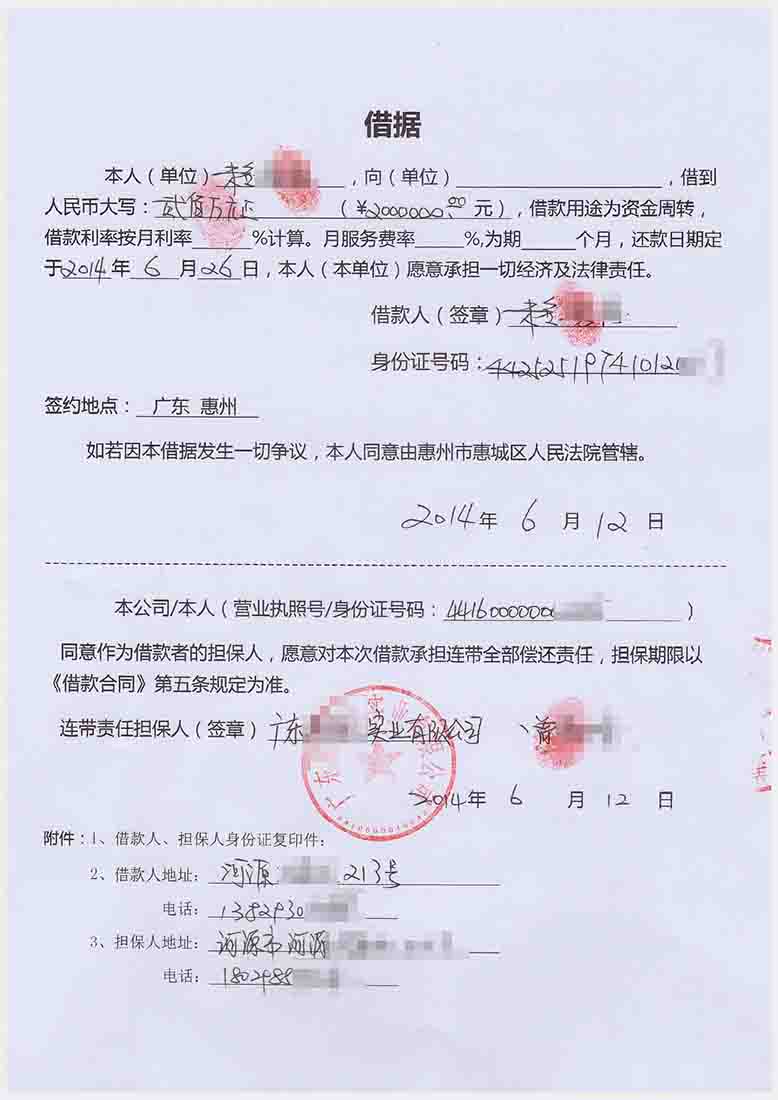 借据
本人（单位），向（单位），借到
人民币大写：贰佰万元正（￥2000000.00元），借款用途为资金周转，
借款利率按月利率 %计算。月服务费率 %,为期 个月，还款日期定
于2014年6月26日，本人（本单位）愿意承担一切经济及法律责任。
借款人（签章）
身份证号码：44252519741012
签约地点：广东 惠州
如若因本借据发生一切争议，本人同意由惠州市惠城区人民法院管辖。
2014年 6 月 12 日
本公司/本人（营业执照号/身份证号码：4416000000 ）
同意作为借款者的担保人，愿意对本次借款承担连带全部偿还责任，担保期限以
《借款合同》第五条规定为准。
连带责任担保人（签章）广东 实业有限公司
2014年 6 月 12 日
附件：1、借款人、担保人身份证复印件：
2、借款人地址：河源 213号
电话：1382930
3、担保人地址：河源市河源
电话：1802988